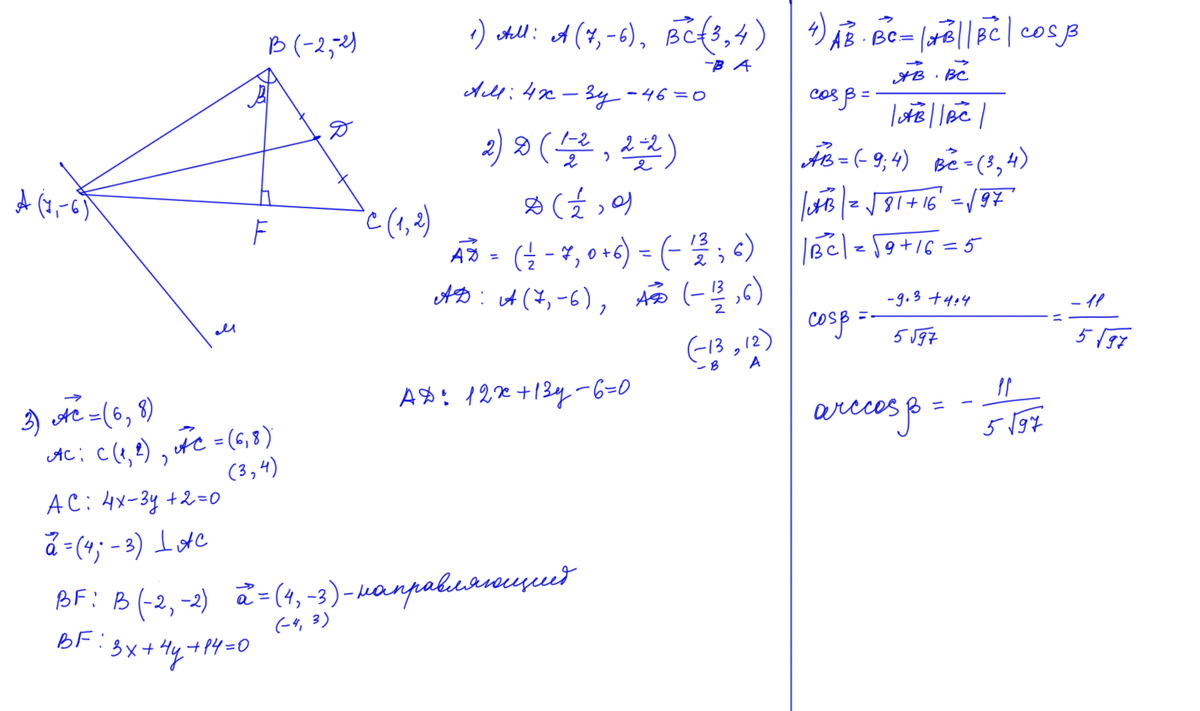 B (-2,-2)
β
D
A (7,-6)
F
C (1,2)
M
1) AM: A (7,-6), \vec{BC}=(3, 4)
-B A
AM: 4x - 3y - 46 = 0
2) D (\frac{1-2}{2}, \frac{2-2}{2})
D (\frac{1}{2}, 0)
\vec{AD} = (\frac{1}{2} - 7, 0+6) = (-\frac{13}{2}; 6)
AD: A (7,-6), \vec{AD} (-\frac{13}{2}, 6)
(-13, 12)
-B A
AD: 12x + 13y - 6 = 0
3) \vec{AC} = (6, 8)
AC: C (1,2), \vec{AC} = (6,8)
(3,4)
AC: 4x - 3y + 2 = 0
\vec{a} = (4; -3) ⊥ AC
BF: B (-2, -2) \vec{a} = (4, -3) - направляющий
(-4, 3)
BF: 3x + 4y + 14 = 0
4) \vec{AB} · \vec{BC} = |\vec{AB}| |\vec{BC}| cosβ
cosβ = \frac{\vec{AB} · \vec{BC}}{|\vec{AB}| |\vec{BC}|}
\vec{AB} = (-9; 4) \vec{BC} = (3, 4)
|\vec{AB}| = √(81+16) = √97
|\vec{BC}| = √(9+16) = 5
cosβ = \frac{-9·3 + 4·4}{5√97} = \frac{-11}{5√97}
arccosβ = - \frac{11}{5√97}